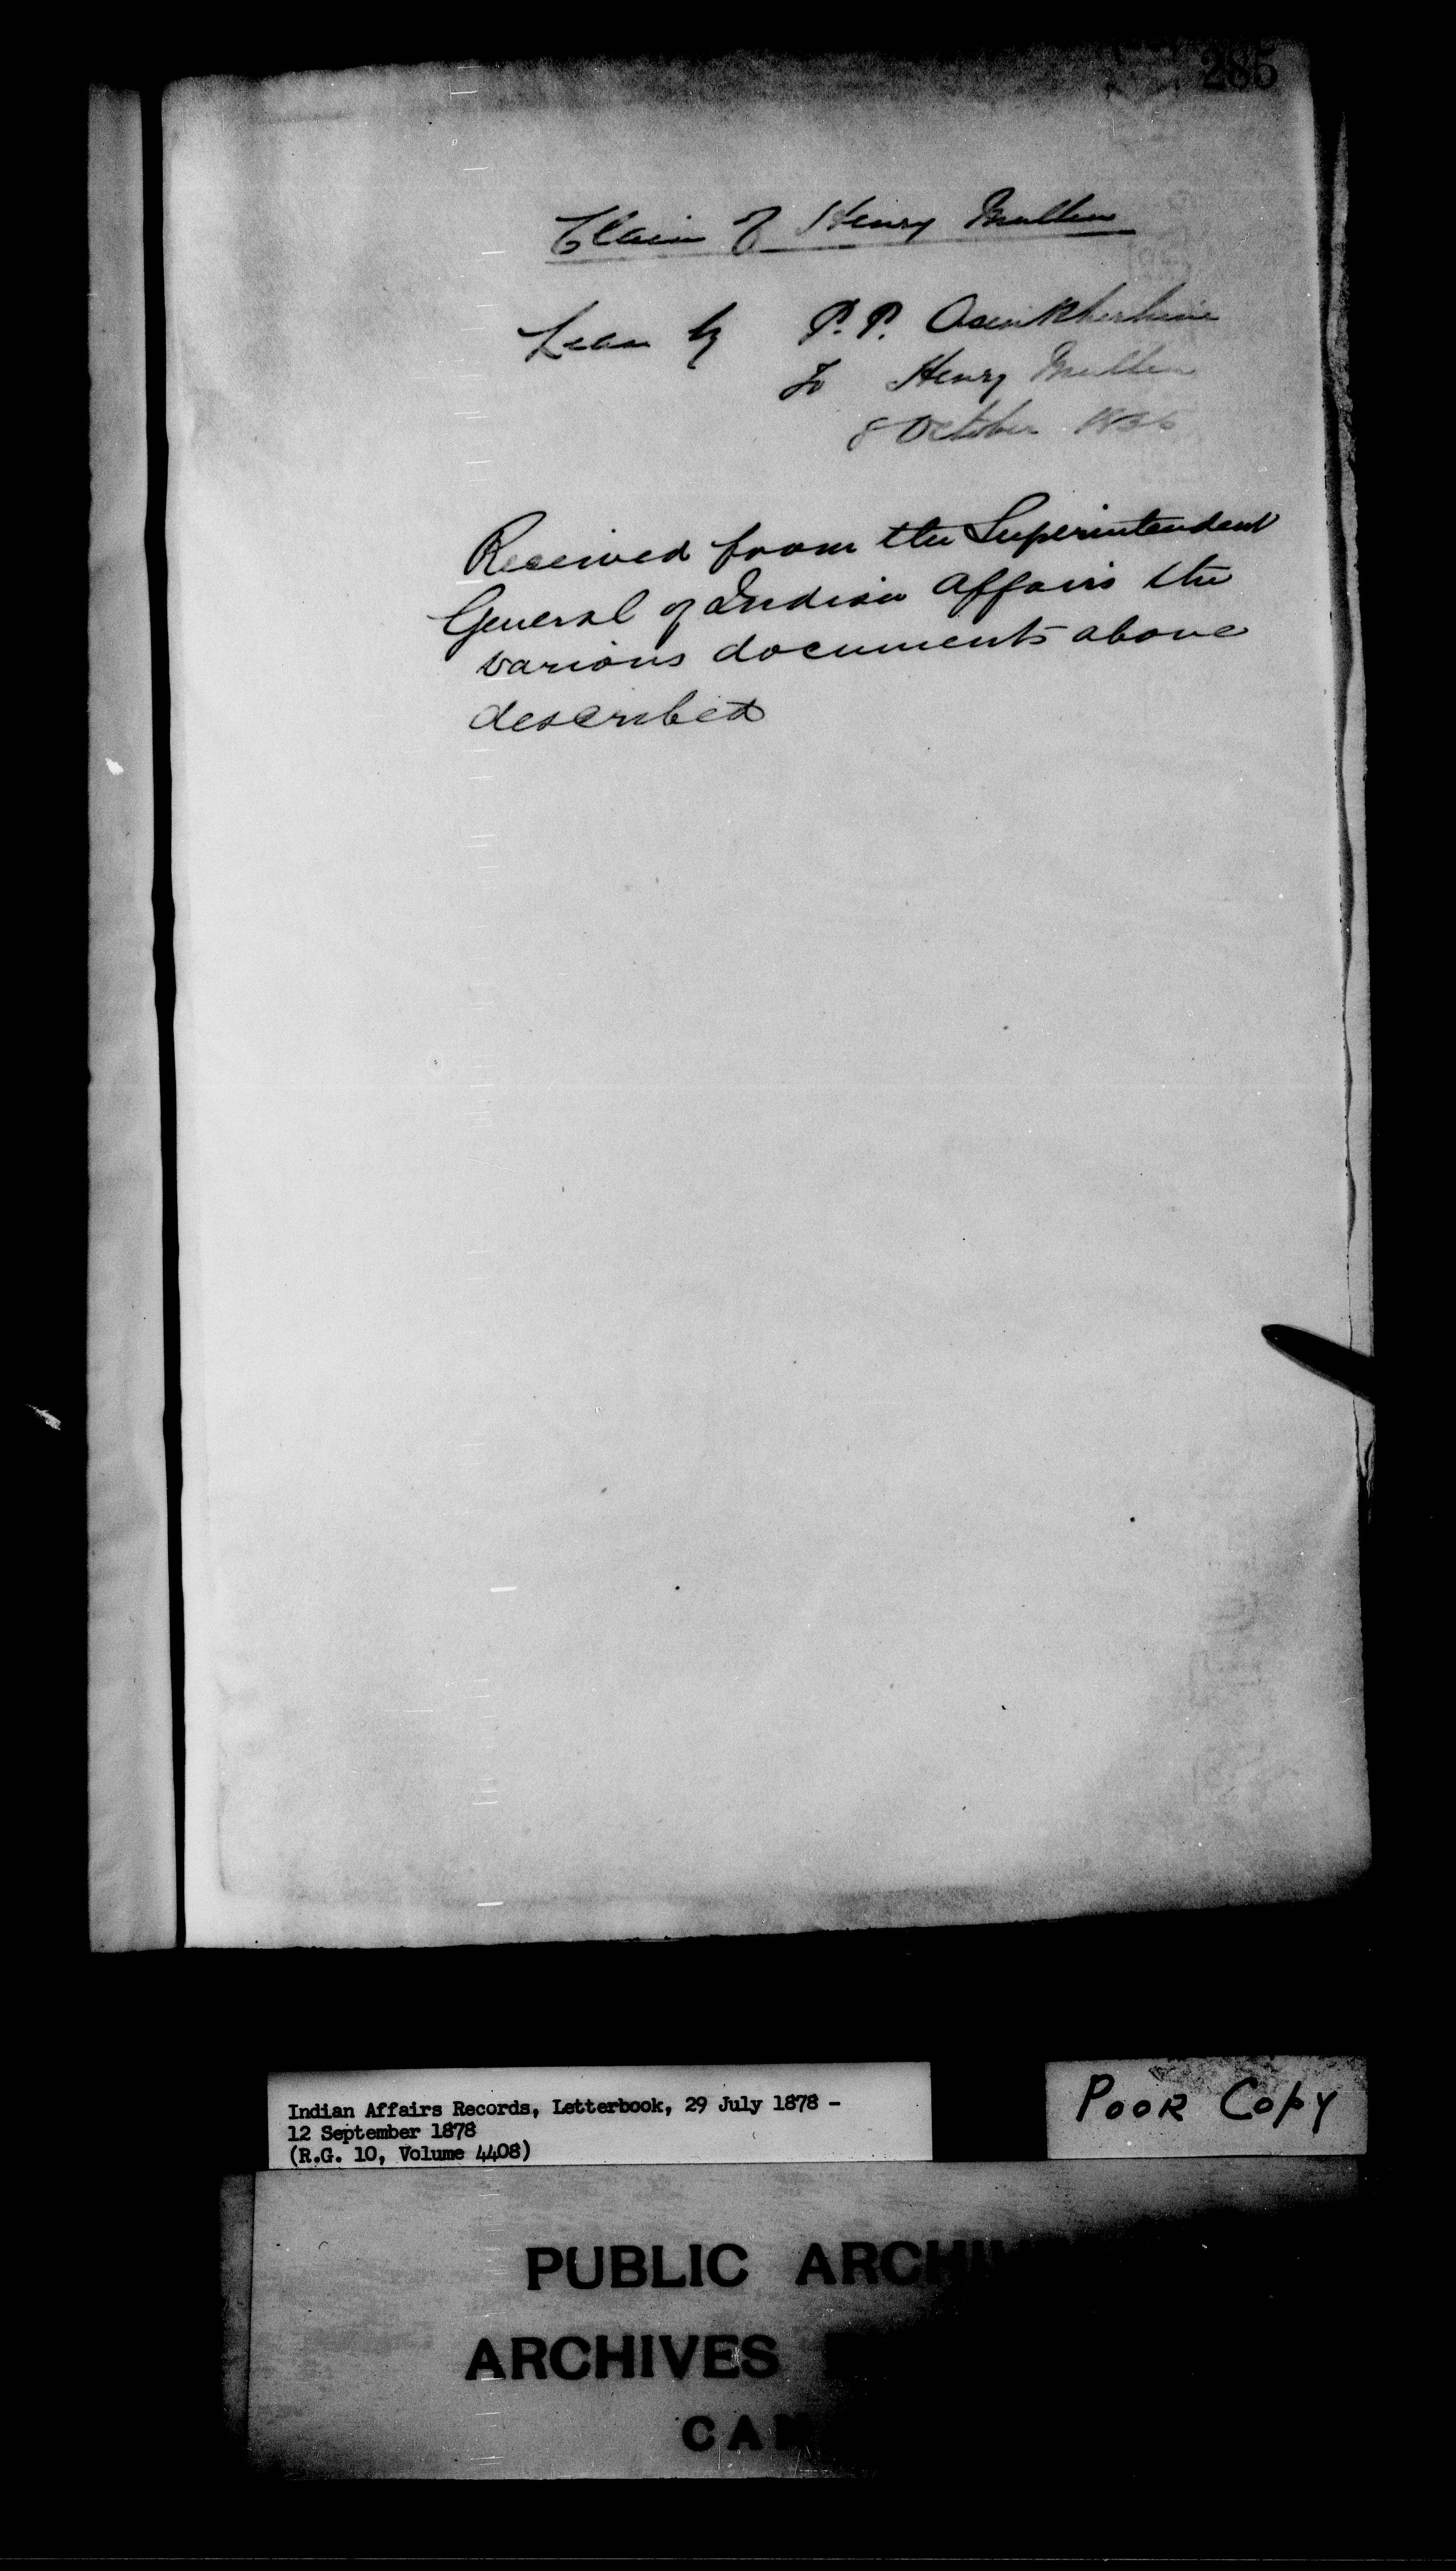 285
Claim of Henry Mullen
Lease by P. P. 
To Henry Mullen
8 October 1836
Received from the Superintendent
General of Indian Affairs the
various documents above
described
Indian Affairs Records, Letterbook, 29 July 1878 -
12 September 1878
(R.G. 10, Volume 4408)
POOR COPY
PUBLIC ARCHIV
ARCHIVES
CAN